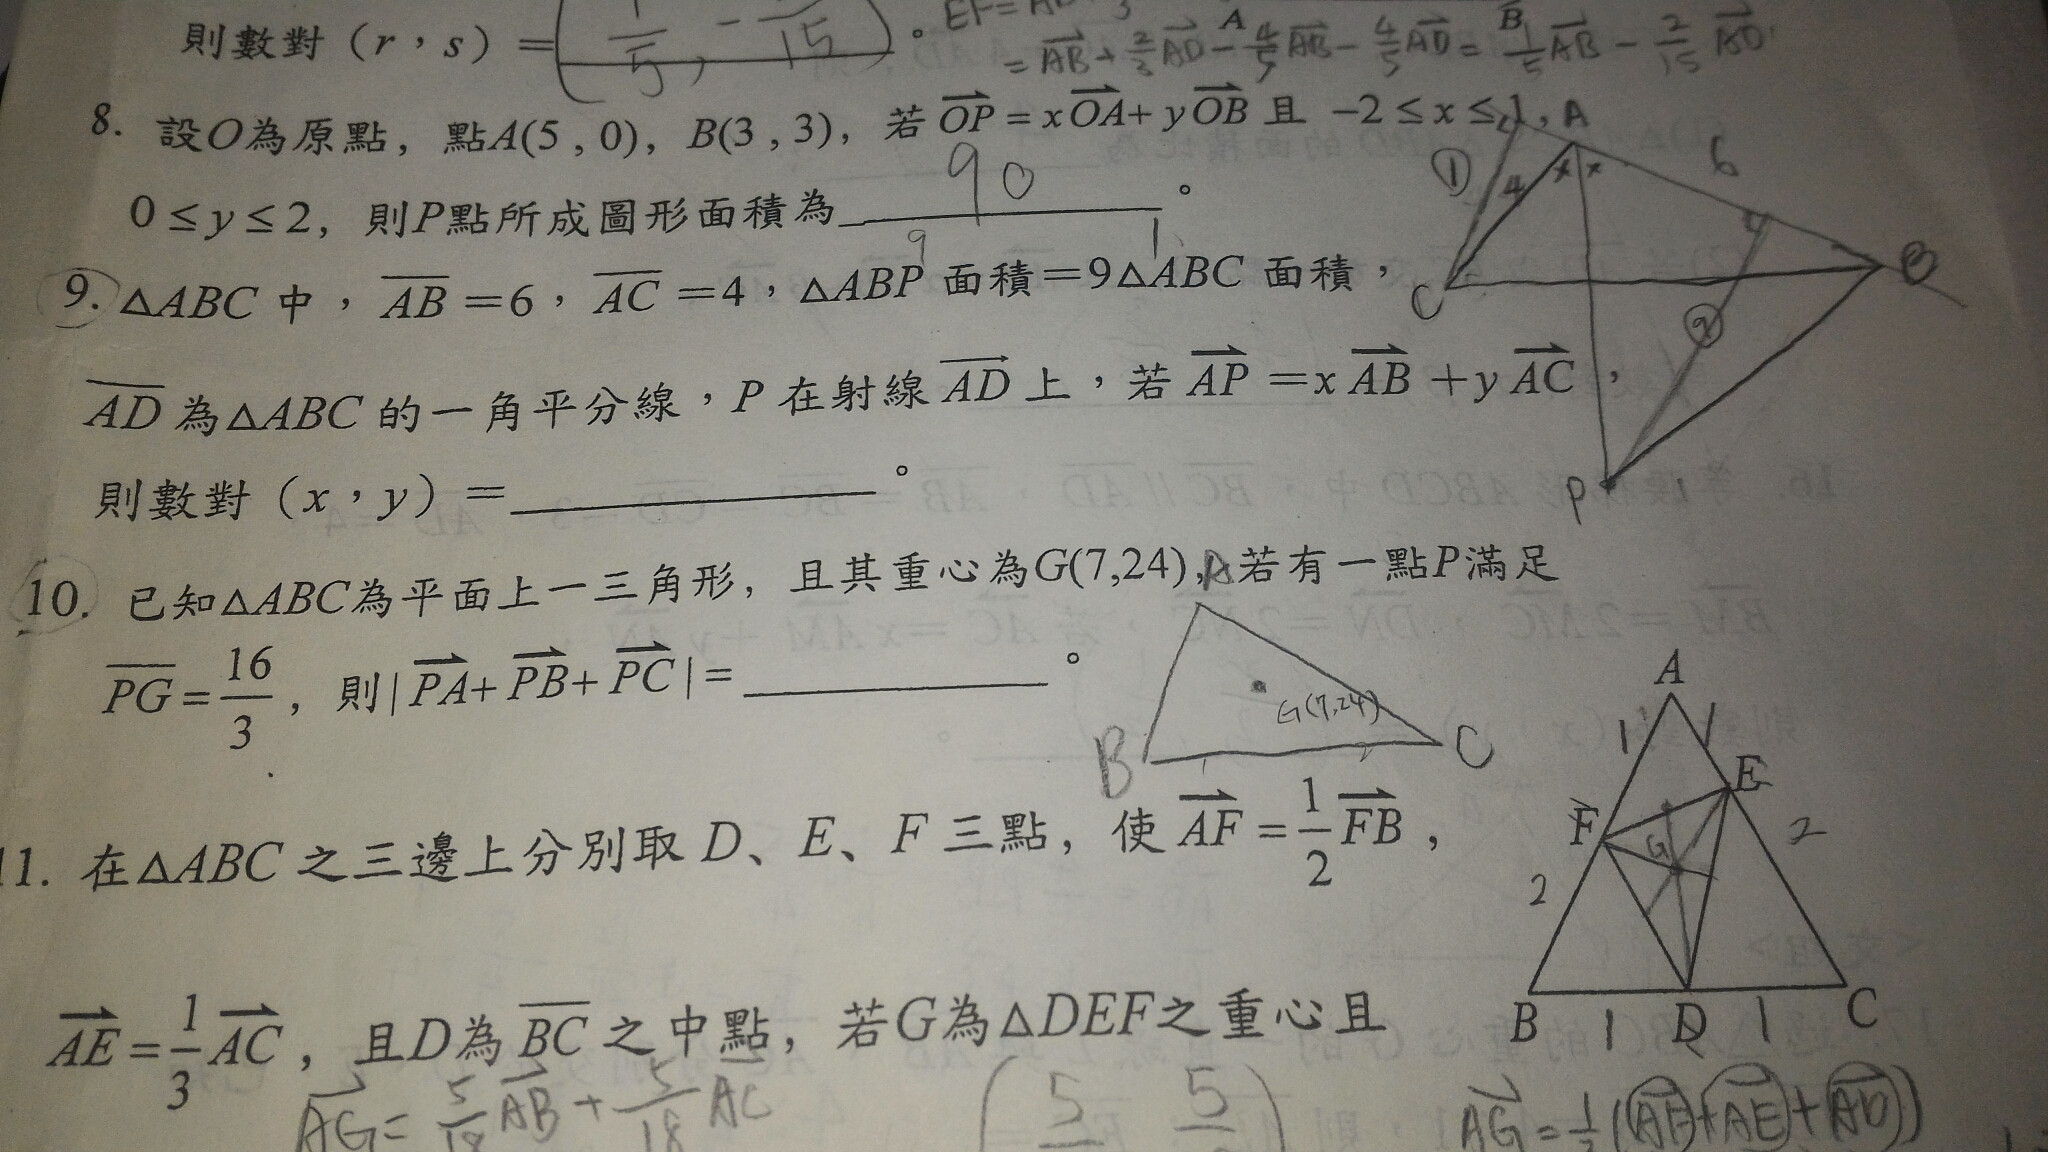 則數對（r，s）＝(1/5, －/15)。 EF=
= AB + 2/3 AD － 4/5 AB － 4/5 AD = 1/5 AB － 2/15 AD
8. 設O為原點，點A(5 , 0)，B(3 , 3)，若 OP = xOA+ yOB 且 −2 ≤ x ≤ 1，
0 ≤ y ≤ 2，則P點所成圖形面積為 90 。
9 1
9. △ABC 中，AB＝6，AC＝4，△ABP 面積＝9△ABC 面積，
AD 為△ABC 的一角平分線，P 在射線 AD 上，若 AP ＝x AB ＋y AC，
則數對（x，y）＝ 。
A 6 ① 4 x x C B ⑨ P
10. 已知△ABC為平面上一三角形，且其重心為G(7,24)，若有一點P滿足
PG = 16/3 ，則| PA+ PB+ PC |= 。
A G(7,24) B C
11. 在△ABC 之三邊上分別取 D、E、F 三點，使 AF = 1/2 FB，
AE = 1/3 AC，且D為 BC 之中點，若G為△DEF之重心且
A 1 1 E F G 2 2 B 1 D 1 C
AG = 5/18 AB + 5/18 AC
(5 5)
AG = (AF+AE+AD)